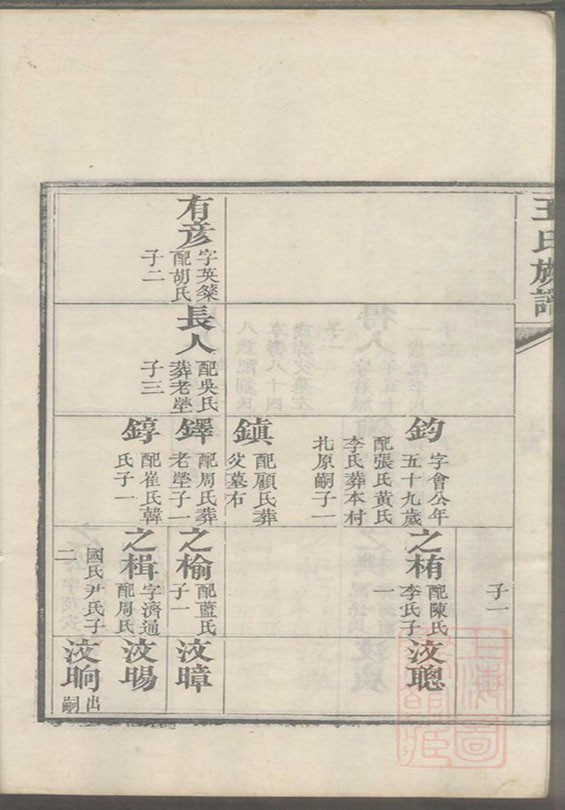 王氏族譜
有彥
字英燊
配胡氏
子二
長人
配吳氏
葬老塋
子三
鈞
字會公年
五十九歲
配張氏黃氏
李氏葬本村
北原嗣子一
鎮
配顧氏葬
父墓右
鐸
配周氏葬
老塋子一
錞
配崔氏韓
氏子一
子一
之栯
配陳氏
李氏子
一
之榆
配藍氏
子一
之楫
字濟通
配周氏
國氏尹氏子
二
汶聰
汶暲
汶暘
汶晌
出
嗣